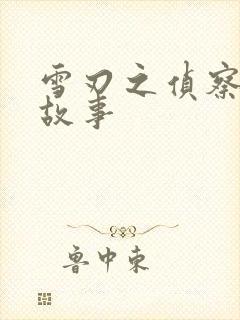 雪刃之偵察
故事
魯中東